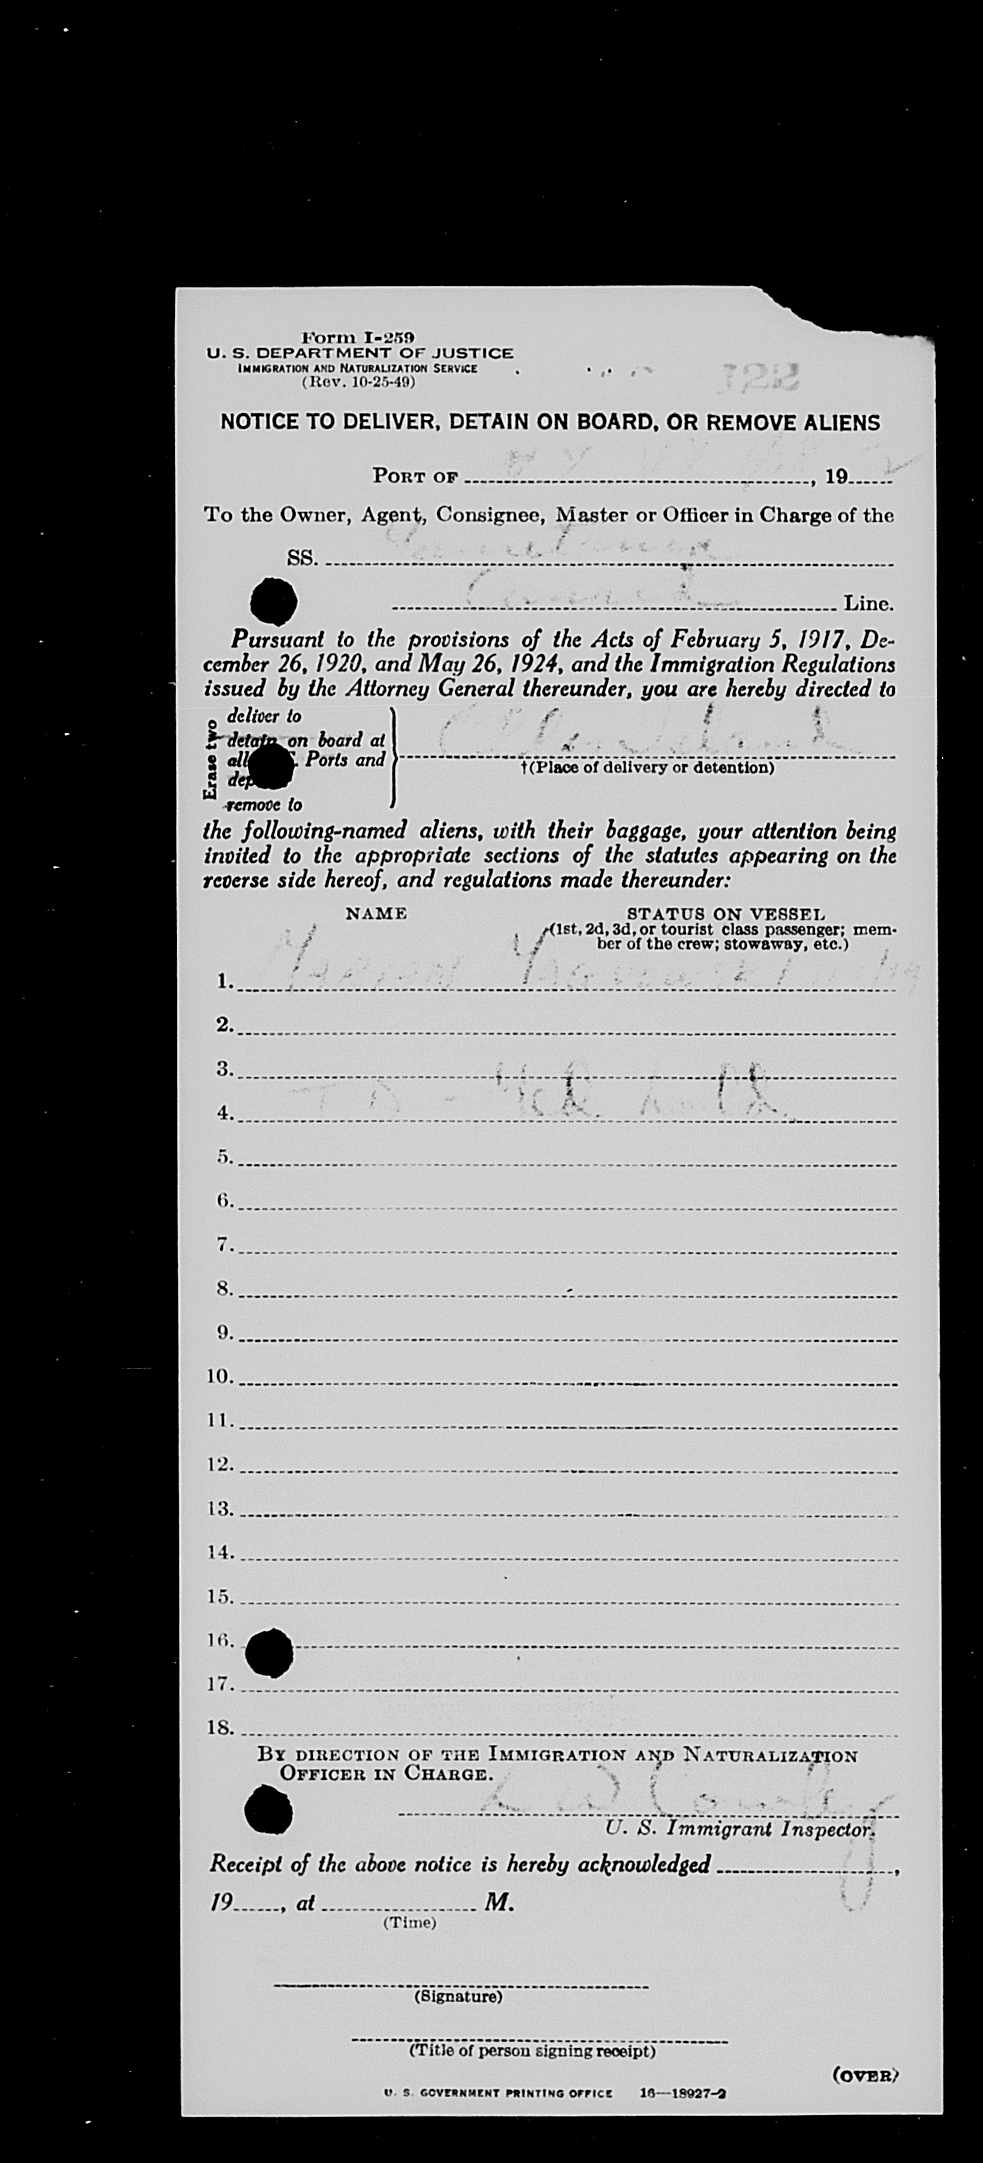 Form I-259
U. S. DEPARTMENT OF JUSTICE
IMMIGRATION AND NATURALIZATION SERVICE
(Rev. 10-25-49)
NOTICE TO DELIVER, DETAIN ON BOARD, OR REMOVE ALIENS
PORT OF N Y, 19
To the Owner, Agent, Consignee, Master or Officer in Charge of the
SS.
Cunard Line.
Pursuant to the provisions of the Acts of February 5, 1917, De-
cember 26, 1920, and May 26, 1924, and the Immigration Regulations
issued by the Attorney General thereunder, you are hereby directed to
Erase two
deliver to
detain on board at
all . Ports and
remove to
Ellis Island
†(Place of delivery or detention)
the following-named aliens, with their baggage, your attention being
invited to the appropriate sections of the statutes appearing on the
reverse side hereof, and regulations made thereunder:
NAME STATUS ON VESSEL
(1st, 2d, 3d, or tourist class passenger; mem-
ber of the crew; stowaway, etc.)
1.
2.
3.
4. T D -
5.
6.
7.
8.
9.
10.
11.
12.
13.
14.
15.
16.
17.
18.
BY DIRECTION OF THE IMMIGRATION AND NATURALIZATION
OFFICER IN CHARGE.
L W
U. S. Immigrant Inspector.
Receipt of the above notice is hereby acknowledged ,
19 , at M.
(Time)
(Signature)
(Title of person signing receipt)
(OVER)
U. S. GOVERNMENT PRINTING OFFICE 16—18927-2